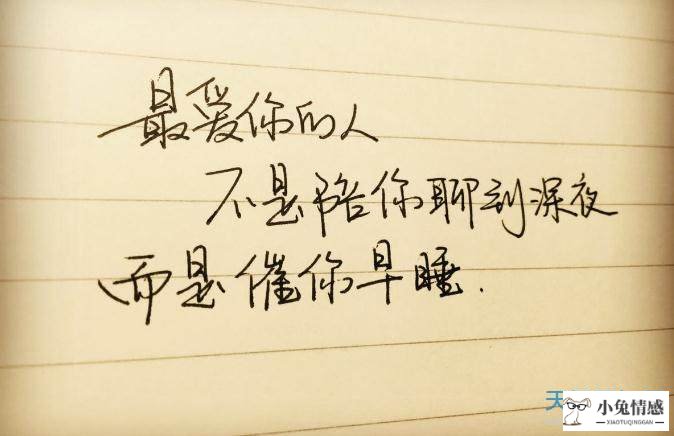 最爱你的人
不是陪你聊到深夜
而是催你早睡.
天
小兔情感
XIAOTUQINGGAN